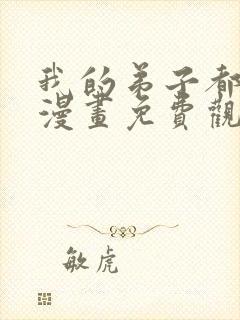 我的弟子都
漫畫免費觀
敏虎